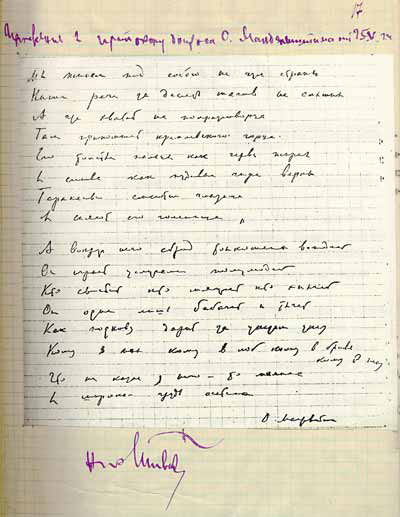 17
Приложение к протоколу допроса О. Мандельштама от 25/V 34
Мы живем под собою не чуя страны
Наши речи за десять шагов не слышны
А где хватит на полразговорца
Там припомнят кремлевского горца.
Его толстые пальцы как черви жирны
И слова как пудовые гири верны
Тараканьи смеются глазища
И сияют его голенища
А вокруг него сброд тонкошеих вождей
Он играет услугами полулюдей
Кто свистит кто мяучит кто хнычет
Он один лишь бабачит и тычет
Как подкову дарит за указом указ
Кому в пах кому в лоб кому в бровь
кому в глаз
Что ни казнь у него – то малина
И широкая грудь осетина
О. Мандельштам